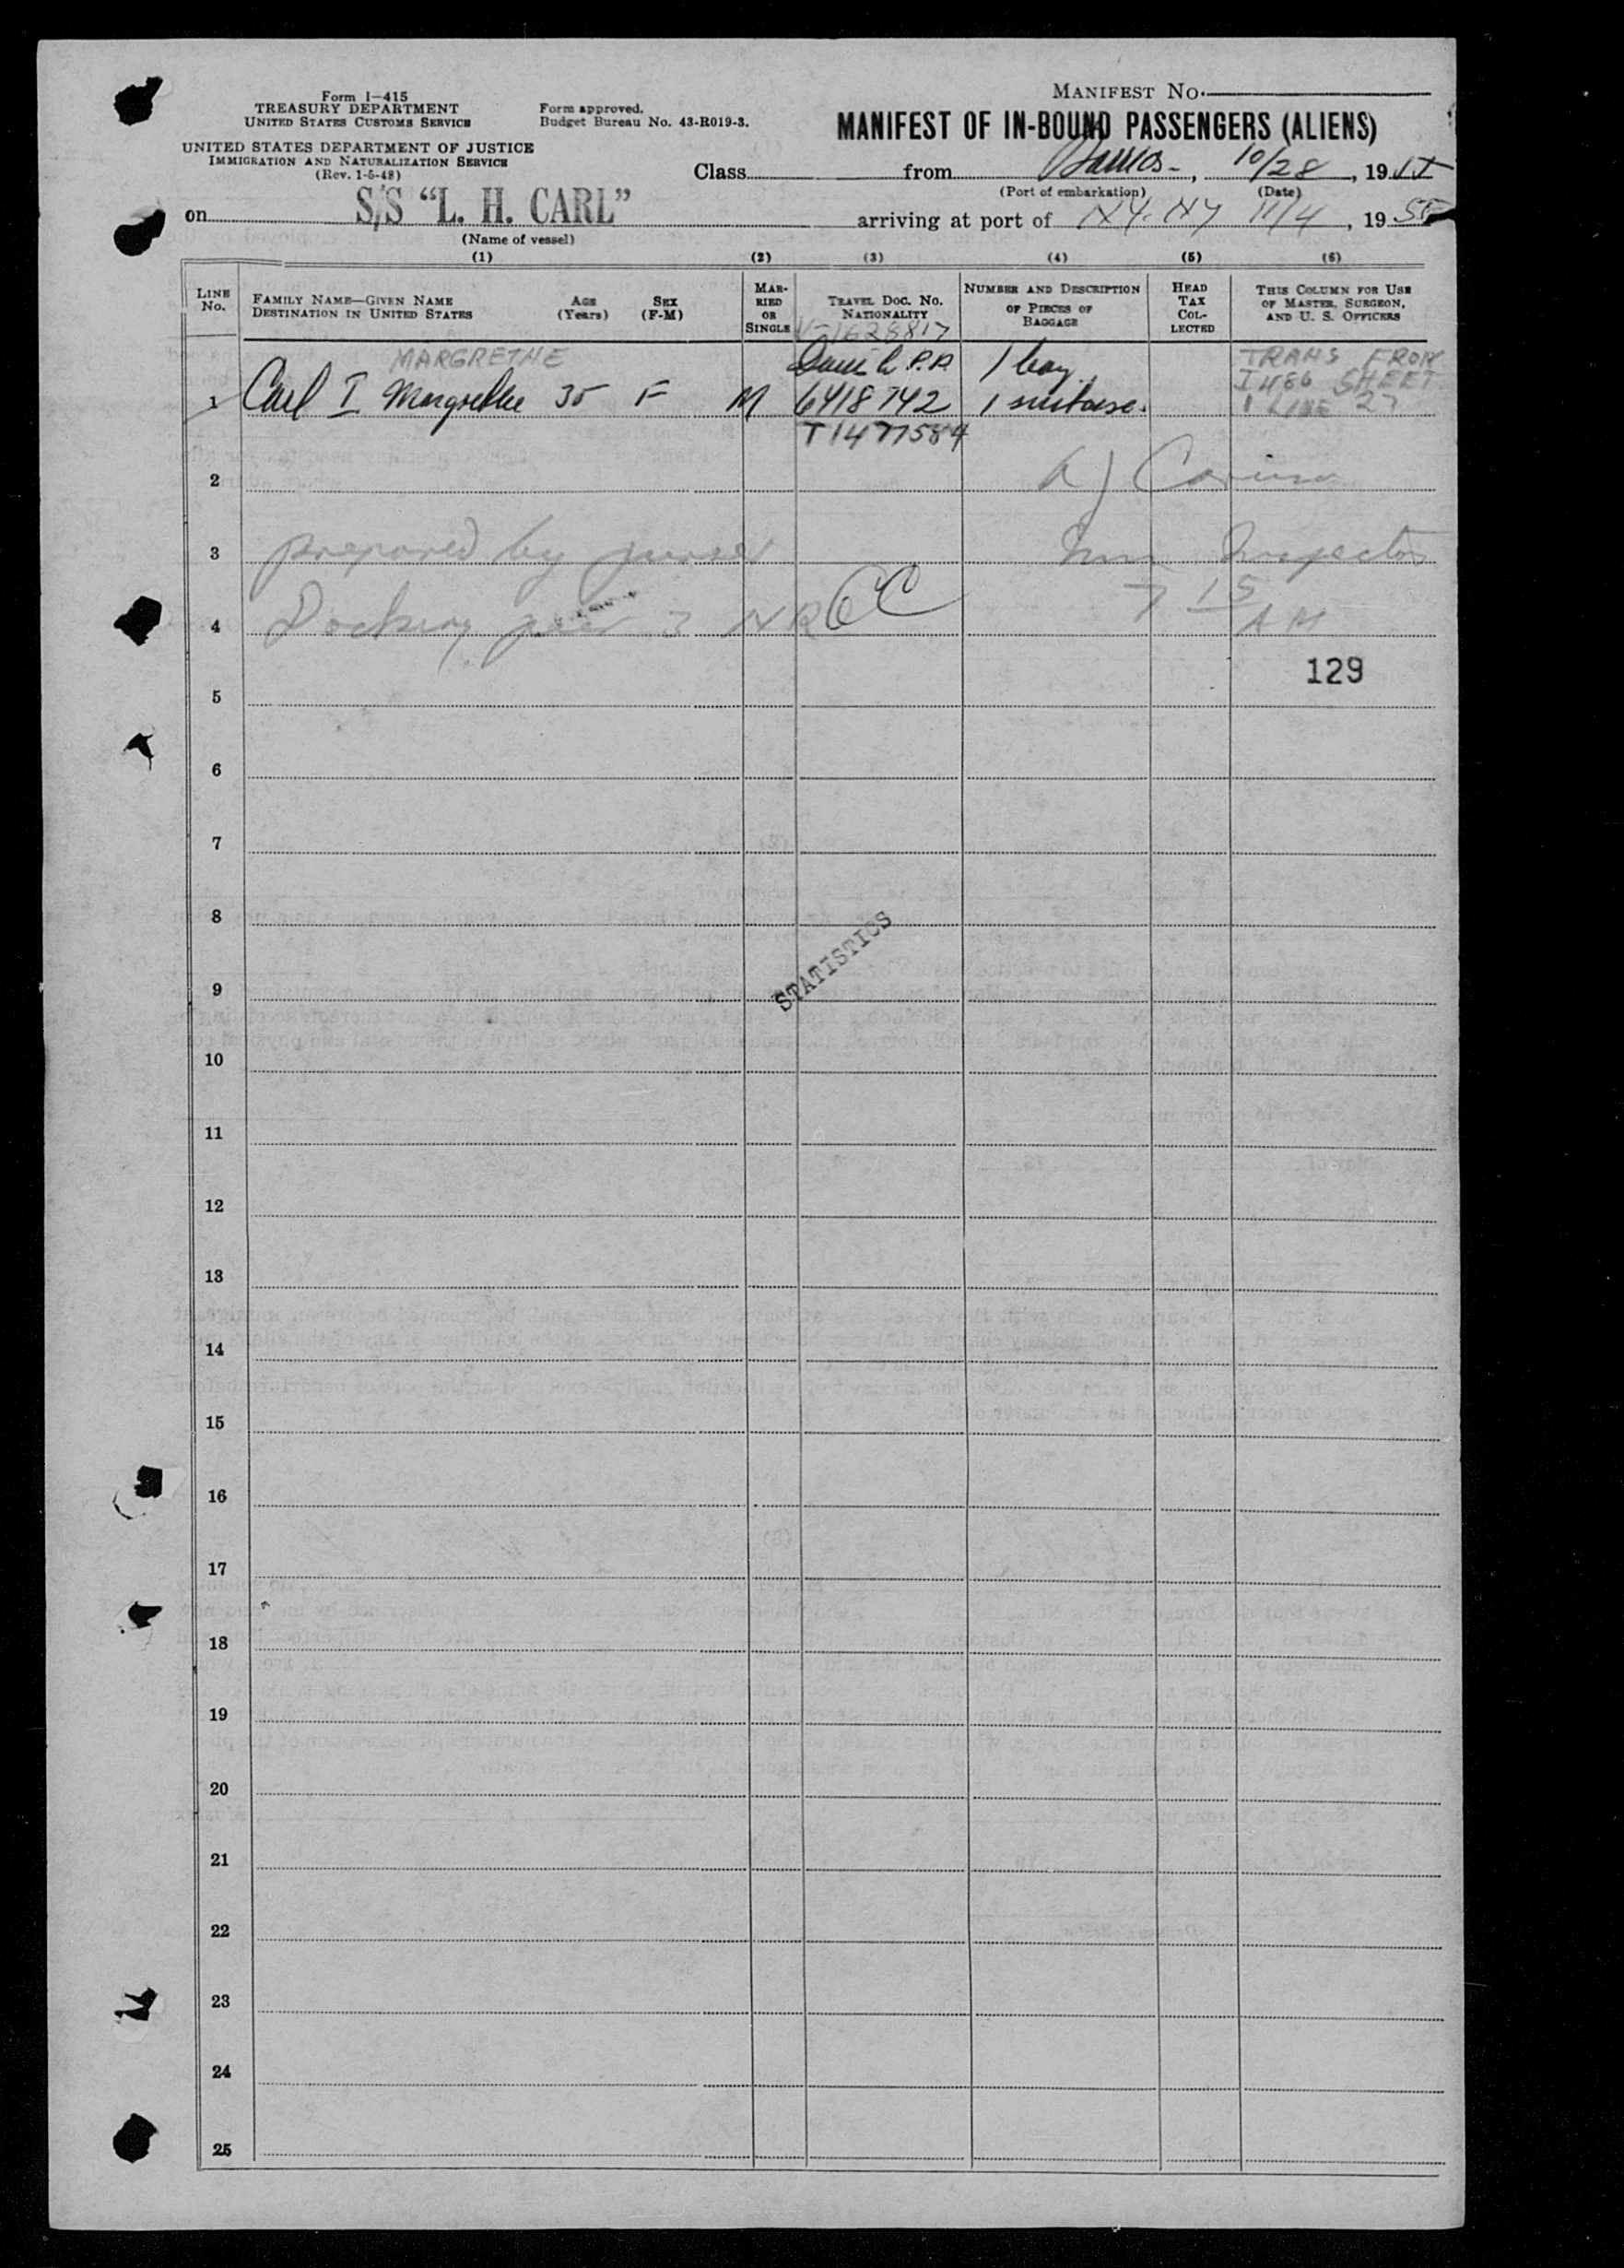 MANIFEST NO.
Form I-415
TREASURY DEPARTMENT
UNITED STATES CUSTOMS SERVICE
Form approved.
Budget Bureau No. 43-R019-3.
MANIFEST OF IN-BOUND PASSENGERS (ALIENS)
UNITED STATES DEPARTMENT OF JUSTICE
IMMIGRATION AND NATURALIZATION SERVICE
(Rev. 1-5-48)
Class from , 10/28, 1955
(Port of embarkation) (Date)
on S/S "L. H. CARL" arriving at port of N.Y. NY 11/4, 1955
(Name of vessel)
(1) (2) (3) (4) (5) (6)
LINE No. FAMILY NAME—GIVEN NAME DESTINATION IN UNITED STATES AGE (Years) SEX (F-M) MARRIED OR SINGLE TRAVEL DOC. NO. NATIONALITY NUMBER AND DESCRIPTION OF PIECES OF BAGGAGE HEAD TAX COLLECTED THIS COLUMN FOR USE OF MASTER, SURGEON, AND U. S. OFFICERS
V-1628817
MARGRETHE Danish P.P. 1 bag. TRANS FROM
I 486 SHEET
1 Carl I Margrethe 35 F M 6418742 1 suitcase. 1 LINE 27
T1477584
2 Caruso
3 prepared by purser Imm Inspector
4 Docking pier 3 NR CC 7 15 AM
129
5
6
7
8
STATISTICS
9
10
11
12
13
14
15
16
17
18
19
20
21
22
23
24
25